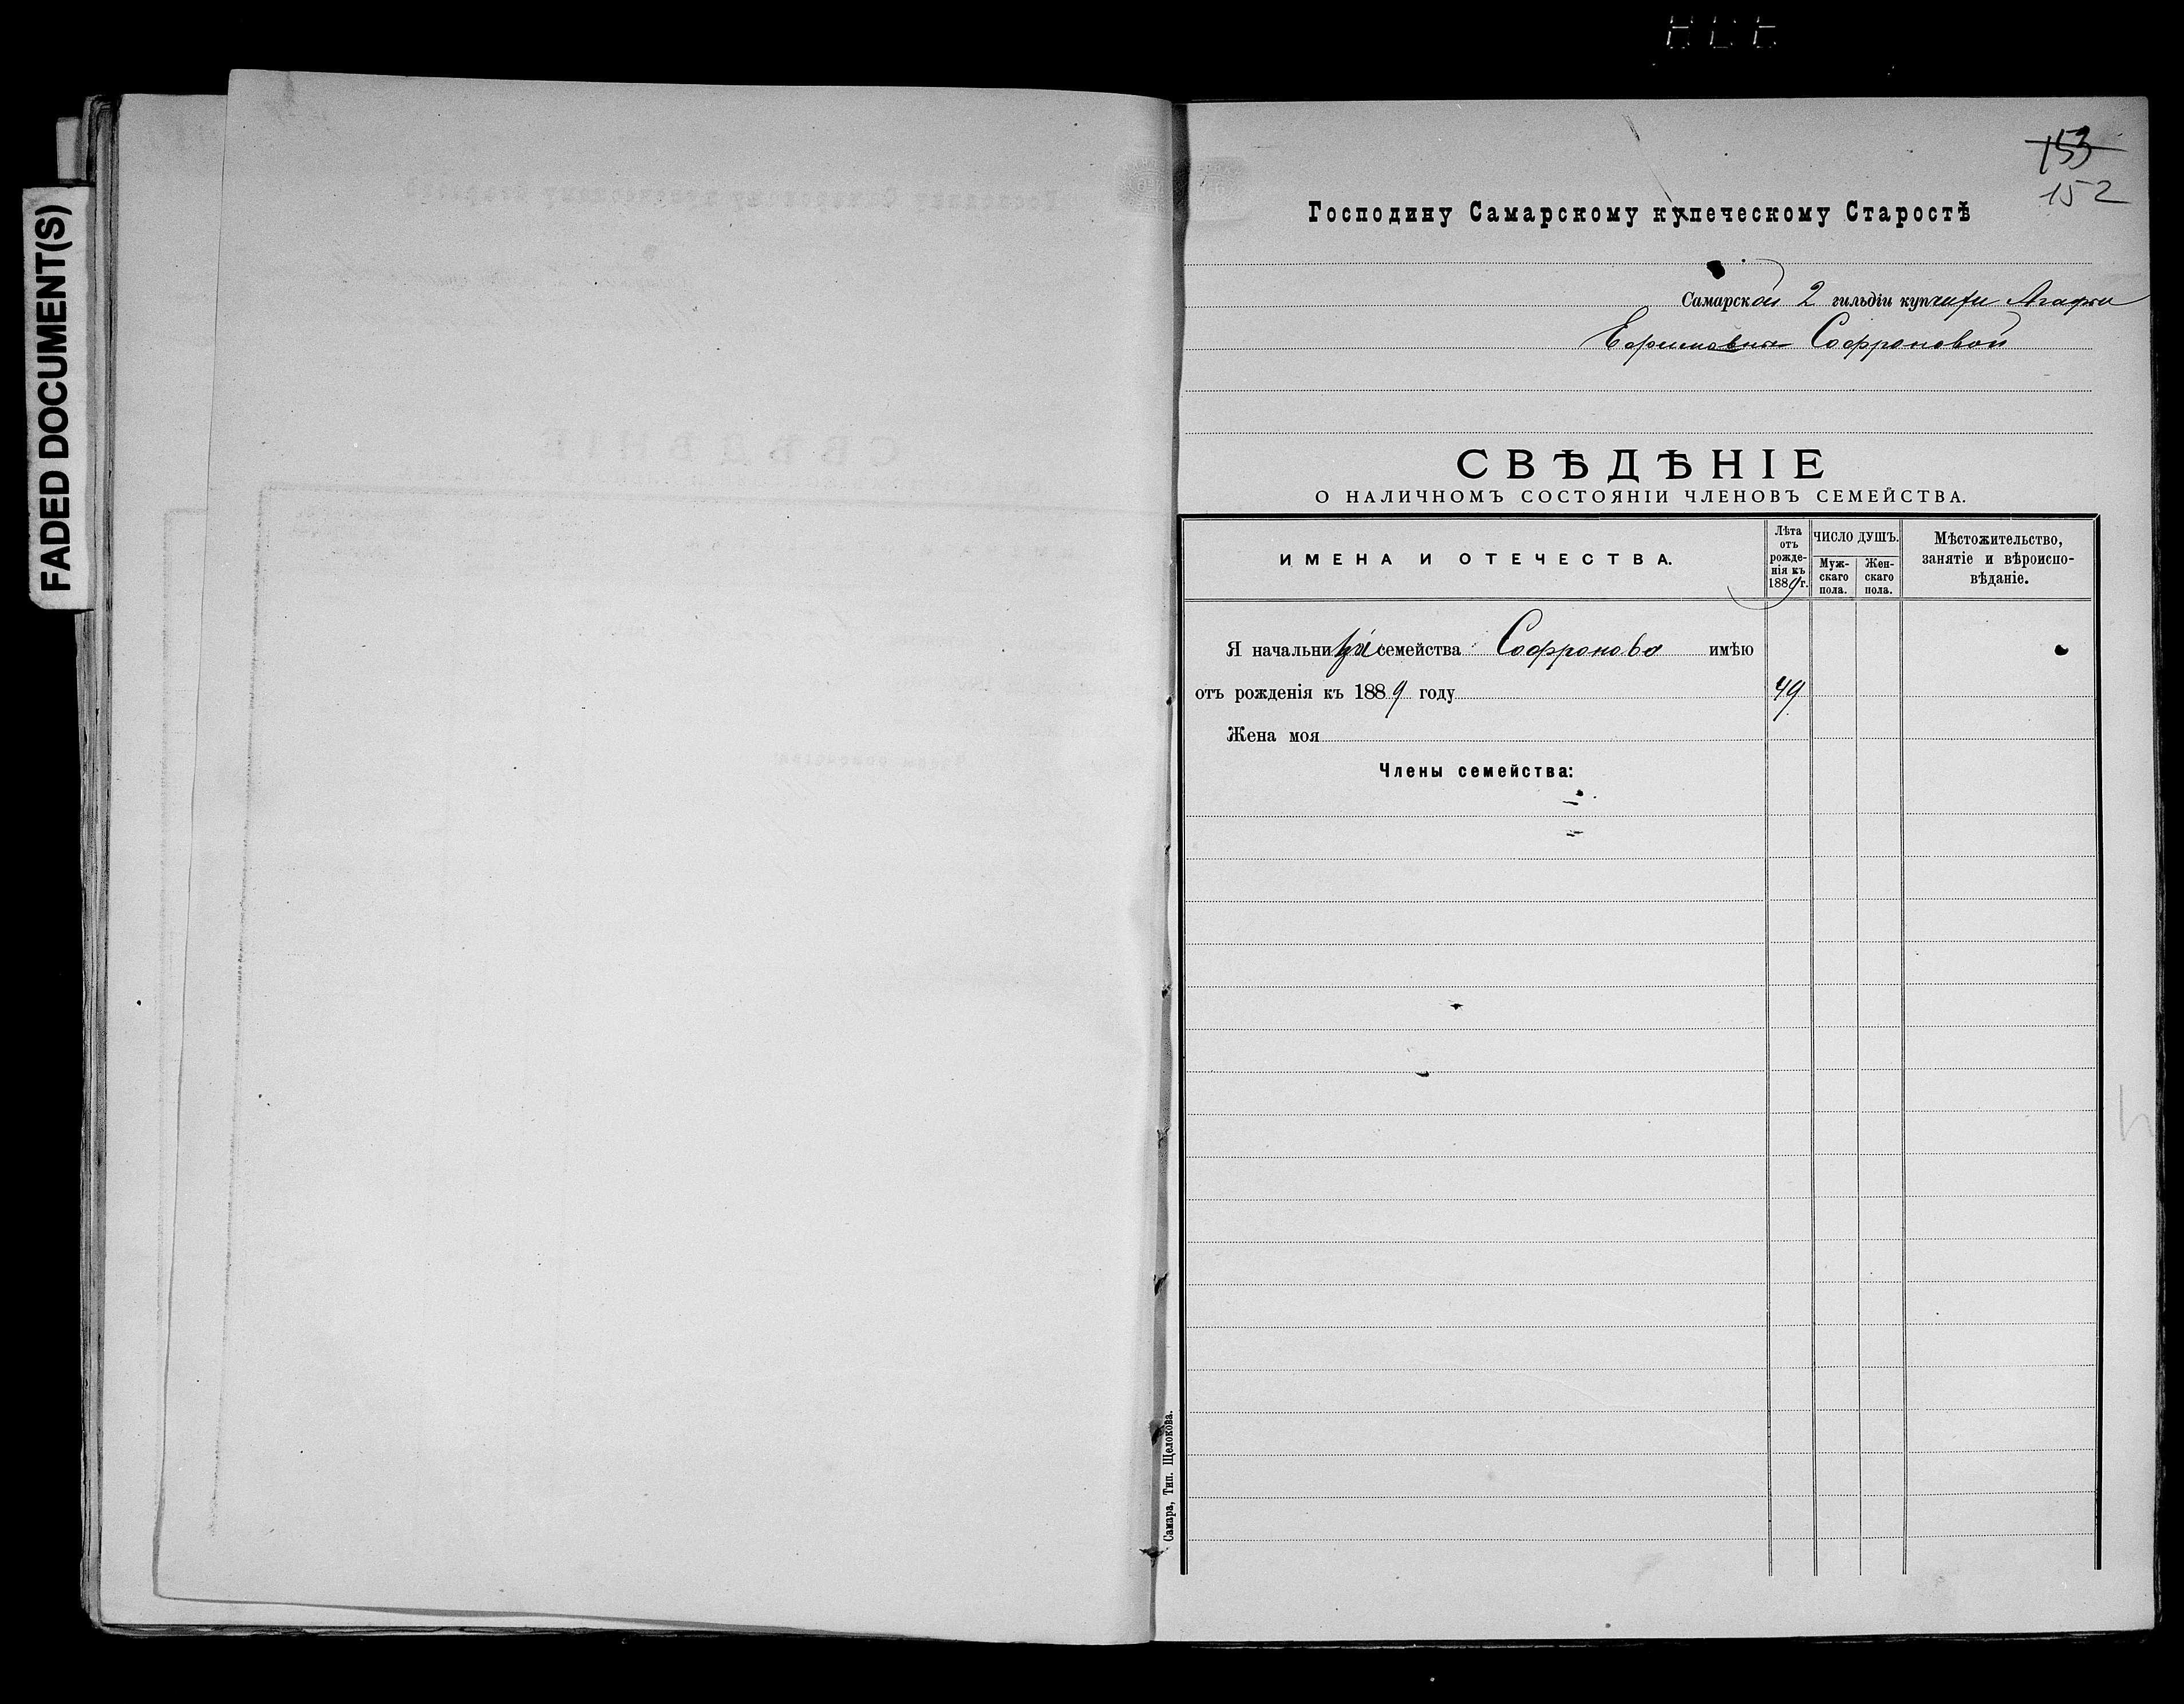 FADED DOCUMENT(S)
153
152
Господину Самарскому купеческому Старостѣ
Самарской 2 гильдіи купчихи Агафьи
Ефимовны Софроновой
СВѢДѢНІЕ
О НАЛИЧНОМЪ СОСТОЯНІИ ЧЛЕНОВЪ СЕМЕЙСТВА.
ИМЕНА И ОТЕЧЕСТВА.
Лѣта
отъ
рожде-
нія къ
1889 г.
ЧИСЛО ДУШЪ.
Муж-
скаго
пола.
Жен-
скаго
пола.
Мѣстожительство,
занятіе и вѣроиспо-
вѣданіе.
Я начальница семейства Софронова имѣю
отъ рожденія къ 1889 году 49
Жена моя
Члены семейства:
Самара, Тип. Щелокова.